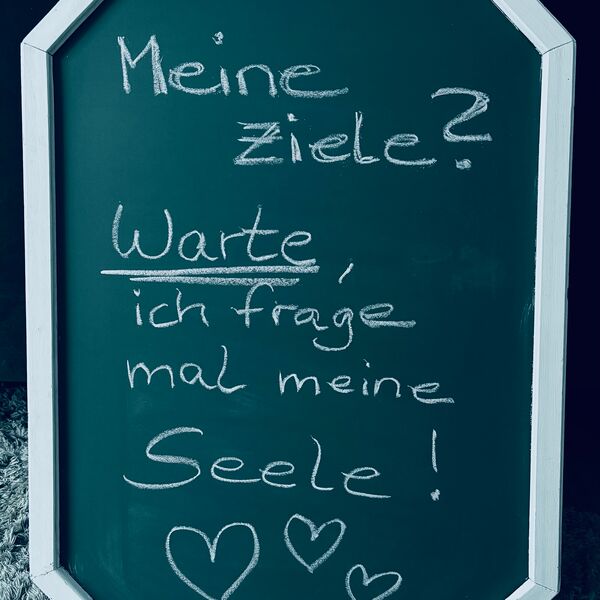 Meine
Ziele?
Warte,
ich frage
mal meine
Seele!